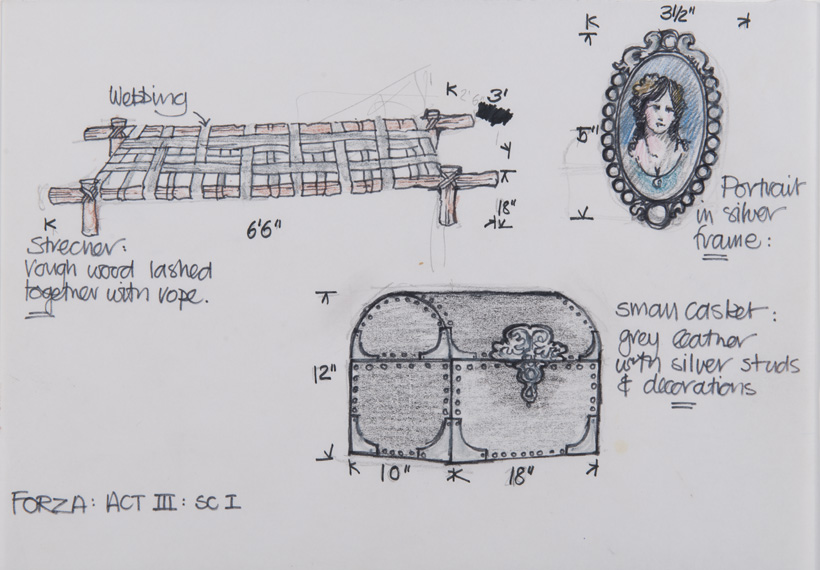 Webbing
K
3'
18"
K
6'6"
Strecher:
rough wood lashed
together with rope.
K
3½"
5"
Portrait
in silver
frame:
12"
10"
18"
small casket:
grey leather
with silver studs
& decorations
FORZA: ACT III: SC I